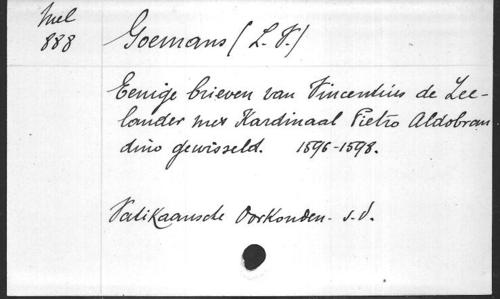 Mel
888
Goemans (L. V.)
Eenige brieven van Vincentius de Zee-
lander met Kardinaal Pietro Aldobran
dino gewisseld. 1596-1598.
Vatikaansche Oorkonden - s.d.